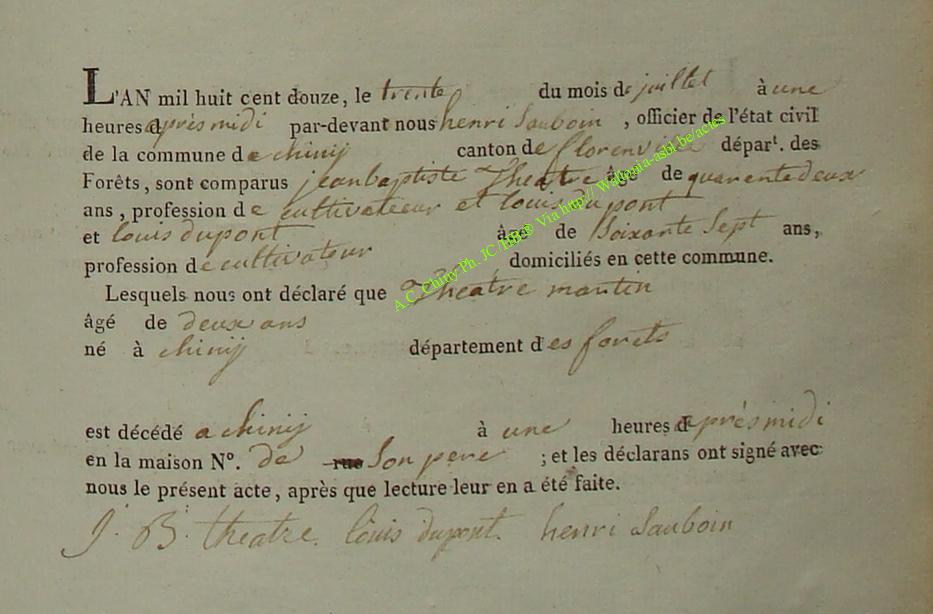 L'AN mil huit cent douze, le trente du mois de juillet à une
heures d après midi par-devant nous henri Sauboin , officier de l'état civil
de la commune de chinij canton de florenville dépar^t. des
Forêts , sont comparus jean baptiste Theatre âgé de quarente deux
ans , profession de cultivateur et louis dupont
et louis dupont âgé de Soixante Sept ans,
profession de cultivateur domiciliés en cette commune.
Lesquels nous ont déclaré que Theatre martin
âgé de deux ans
né à chinij département des forets
est décédé a chinij à une heures d après midi
en la maison N°. de rue Son pere ; et les déclarans ont signé avec
nous le présent acte, après que lecture leur en a été faite.
J. B. theatre. louis dupont. henri Sauboin
A.C. Chiny Ph. JC Via http// Wallonia-asbl.be/actes